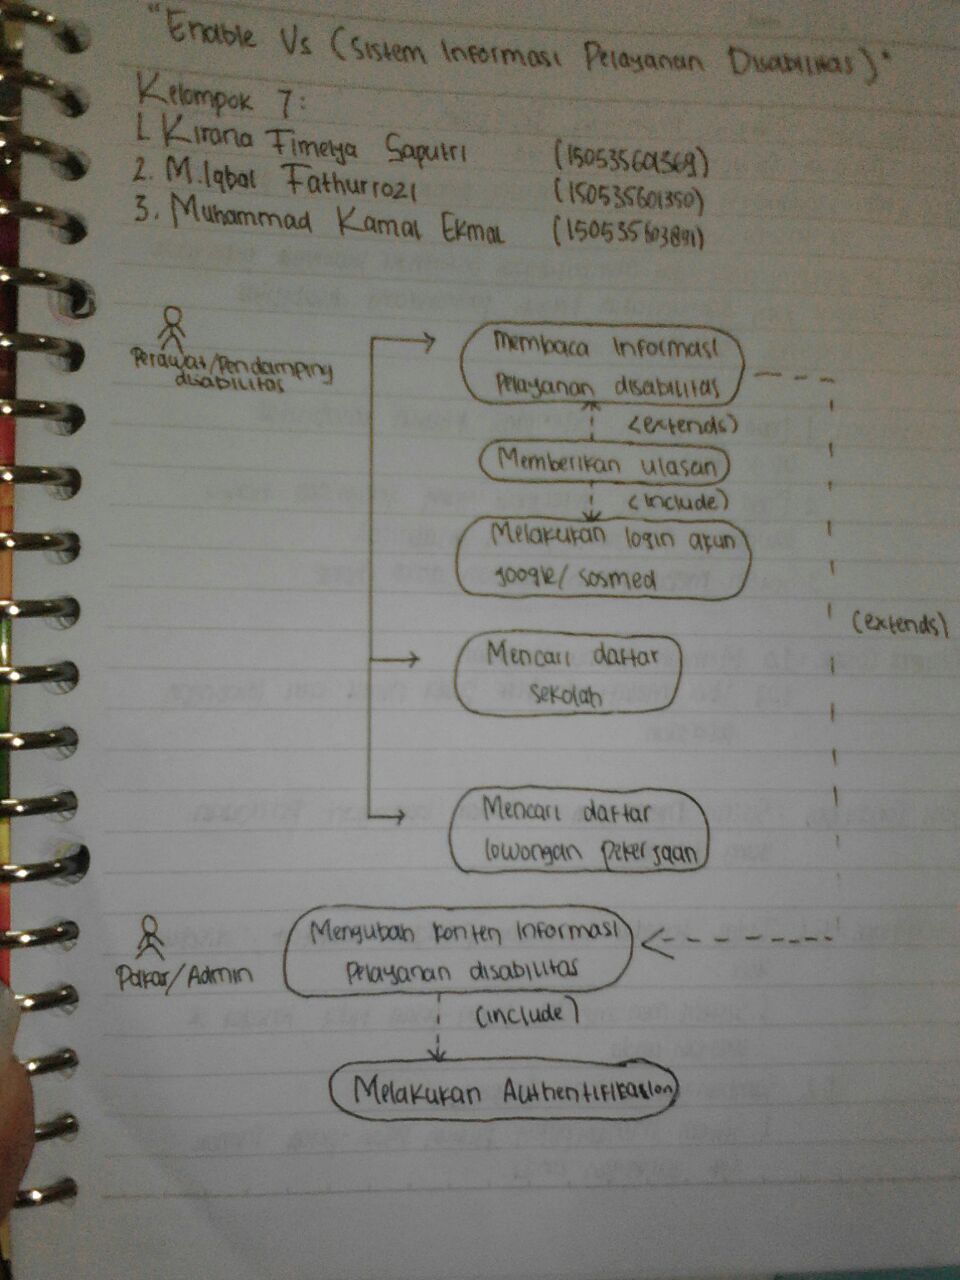 "Enable Us (Sistem Informasi Pelayanan Disabilitas)"
Kelompok 7:
1. Kirana Fimelya Saputri (150535601369)
2. M. Iqbal Fathurrozi (150535601350)
3. Muhammad Kamal Ekmal (150535603891)
Perawat/Pendamping
disabilitas
Membaca Informasi
Pelayanan disabilitas
(extends)
Memberikan ulasan
(include)
Melakukan login akun
google/sosmed
(extends)
Mencari daftar
sekolah
Mencari daftar
lowongan pekerjaan
Pakar/Admin
Mengubah konten Informasi
Pelayanan disabilitas
(include)
Melakukan Authentifikasion